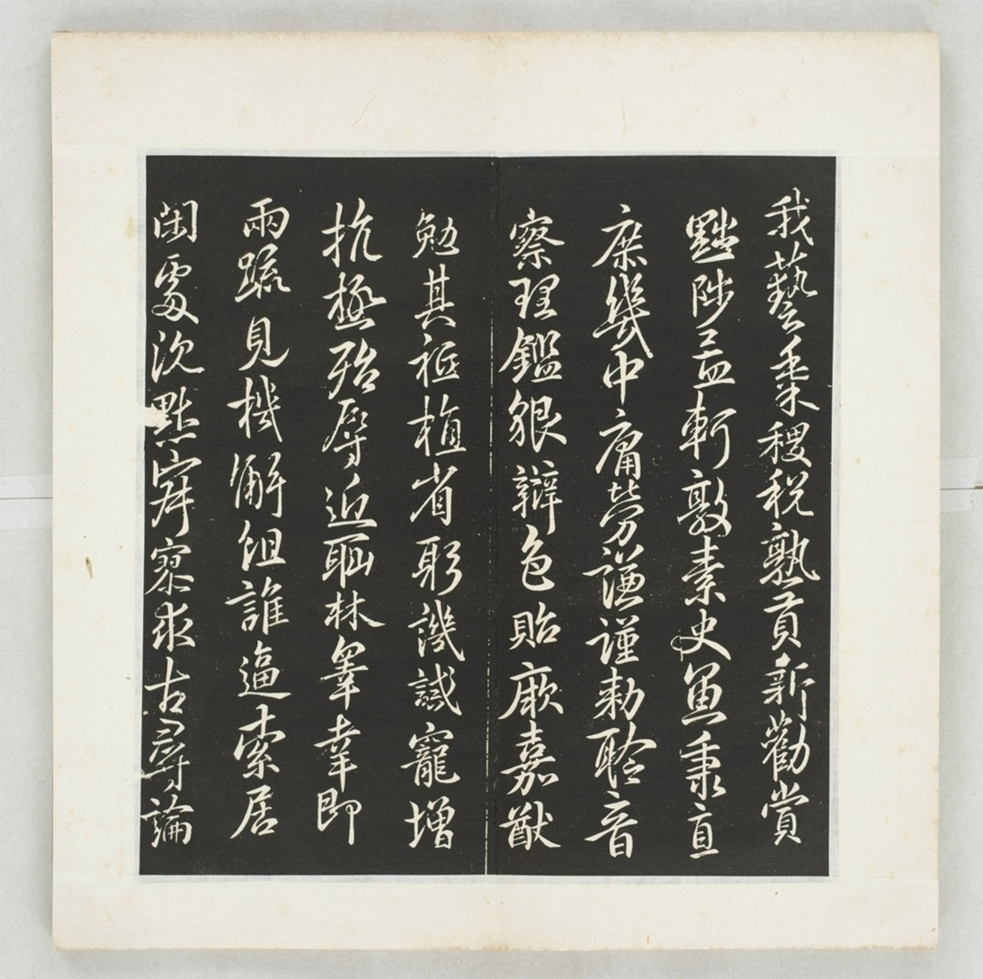 我藝黍稷稅熟貢新勸賞
黜陟孟軻敦素史魚秉直
庶幾中庸勞謙謹勑聆音
察理鑑貌辯色貽厥嘉猷
勉其祗植省躬譏誡寵增
抗極殆辱近恥林皋幸即
兩疏見機解組誰逼索居
閑處沉默寂寥求古尋論